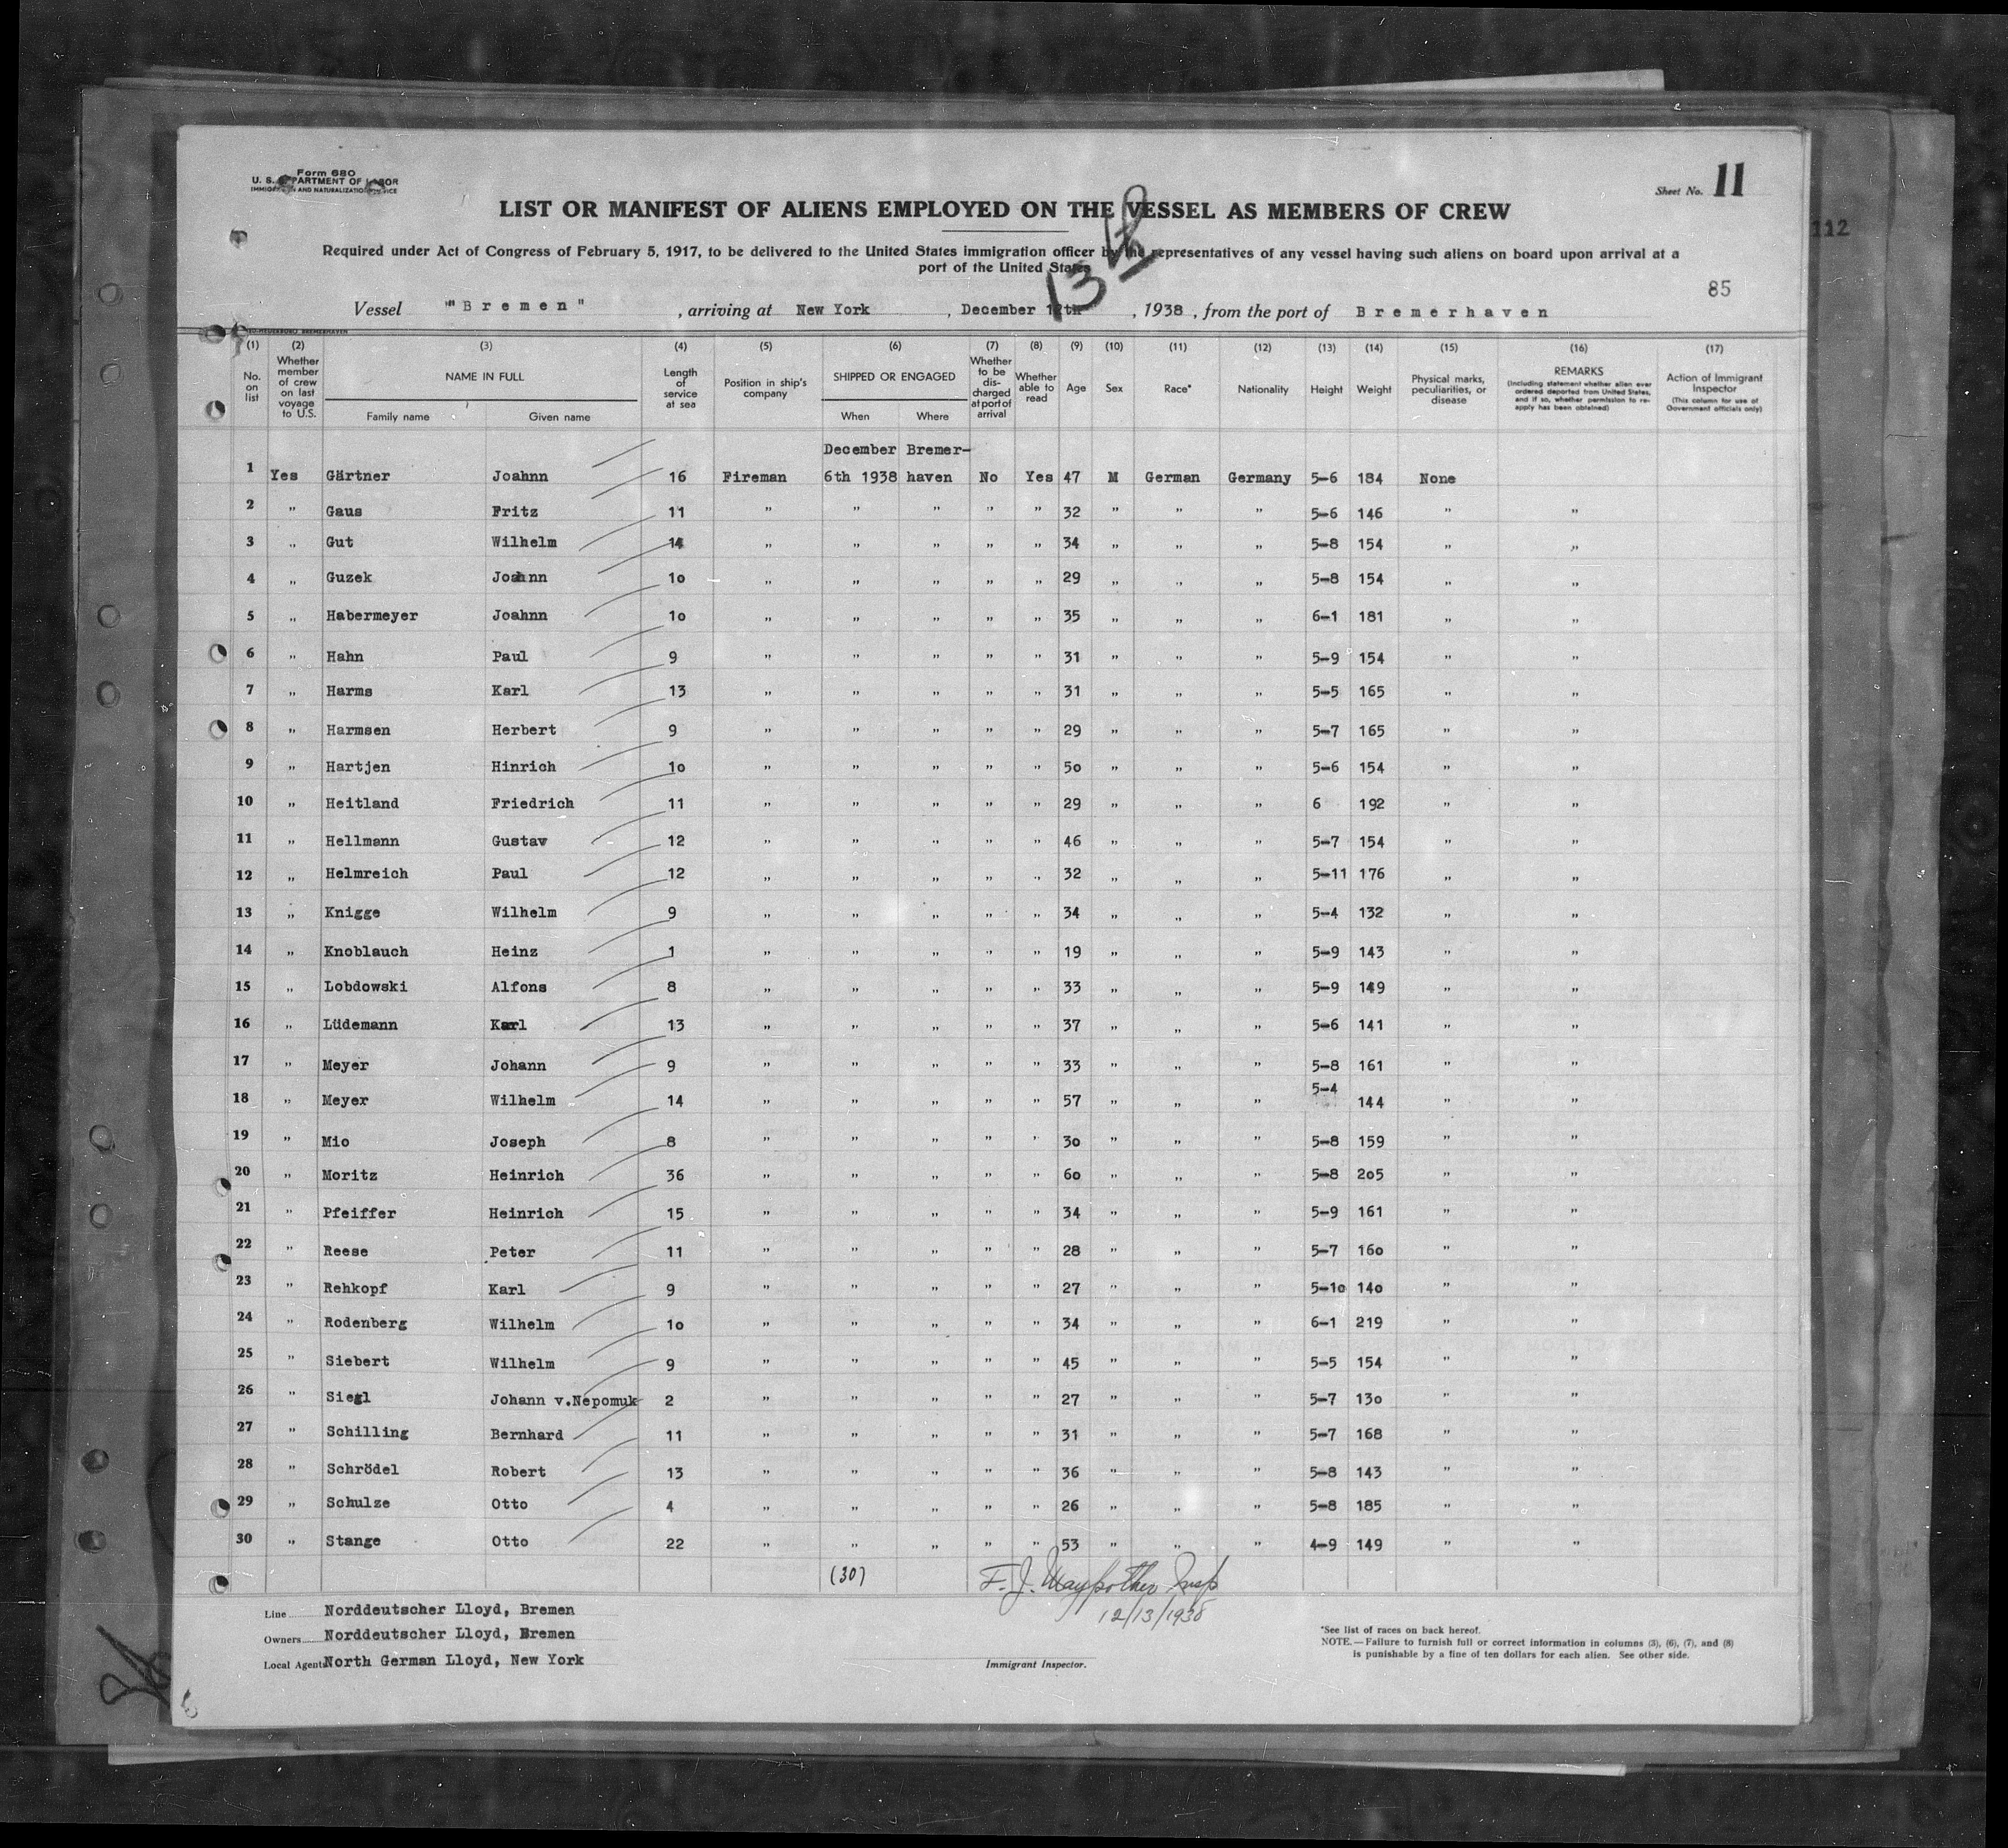 Form 680
U. S. DEPARTMENT OF LABOR
IMMIGRATION AND NATURALIZATION SERVICE
Sheet No. 11
LIST OR MANIFEST OF ALIENS EMPLOYED ON THE VESSEL AS MEMBERS OF CREW
112
Required under Act of Congress of February 5, 1917, to be delivered to the United States immigration officer by the representatives of any vessel having such aliens on board upon arrival at a
port of the United States
13th
85
Vessel "Bremen" , arriving at New York , December 12th , 1938 , from the port of Bremerhaven
(1) (2) (3) (4) (5) (6) (7) (8) (9) (10) (11) (12) (13) (14) (15) (16) (17)
No. on list Whether member of crew on last voyage to U.S. NAME IN FULL Family name Given name Length of service at sea Position in ship's company SHIPPED OR ENGAGED When Where Whether to be discharged at port of arrival Whether able to read Age Sex Race* Nationality Height Weight Physical marks, peculiarities, or disease REMARKS (Including statement whether alien ever ordered deported from United States, and if so, whether permission to re-apply has been obtained) Action of Immigrant Inspector (This column for use of Government officials only)
December Bremer-
1 Yes Gärtner Joahnn 16 Fireman 6th 1938 haven No Yes 47 M German Germany 5-6 184 None
2 " Gaus Fritz 11 " " " " " 32 " " " 5-6 146 " "
3 " Gut Wilhelm 14 " " " " " 34 " " " 5-8 154 " "
4 " Guzek Joahnn 10 " " " " " 29 " " " 5-8 154 " "
5 " Habermeyer Joahnn 10 " " " " " 35 " " " 6-1 181 " "
6 " Hahn Paul 9 " " " " " 31 " " " 5-9 154 " "
7 " Harms Karl 13 " " " " " 31 " " " 5-5 165 " "
8 " Harmsen Herbert 9 " " " " " 29 " " " 5-7 165 " "
9 " Hartjen Hinrich 10 " " " " " 50 " " " 5-6 154 " "
10 " Heitland Friedrich 11 " " " " " 29 " " " 6 192 " "
11 " Hellmann Gustav 12 " " " " " 46 " " " 5-7 154 " "
12 " Helmreich Paul 12 " " " " " 32 " " " 5-11 176 " "
13 " Knigge Wilhelm 9 " " " " " 34 " " " 5-4 132 " "
14 " Knoblauch Heinz 1 " " " " " 19 " " " 5-9 143 " "
15 " Lobdowski Alfons 8 " " " " " 33 " " " 5-9 149 " "
16 " Lüdemann Karl 13 " " " " " 37 " " " 5-6 141 " "
17 " Meyer Johann 9 " " " " " 33 " " " 5-8 161 " "
18 " Meyer Wilhelm 14 " " " " " 57 " " " 5-4 144 " "
19 " Mio Joseph 8 " " " " " 30 " " " 5-8 159 " "
20 " Moritz Heinrich 36 " " " " " 60 " " " 5-8 205 " "
21 " Pfeiffer Heinrich 15 " " " " " 34 " " " 5-9 161 " "
22 " Reese Peter 11 " " " " " 28 " " " 5-7 160 " "
23 " Rehkopf Karl 9 " " " " " 27 " " " 5-10 140 " "
24 " Rodenberg Wilhelm 10 " " " " " 34 " " " 6-1 219 " "
25 " Siebert Wilhelm 9 " " " " " 45 " " " 5-5 154 " "
26 " Siegl Johann v.Nepomuk 2 " " " " " 27 " " " 5-7 130 " "
27 " Schilling Bernhard 11 " " " " " 31 " " " 5-7 168 " "
28 " Schrödel Robert 13 " " " " " 36 " " " 5-8 143 " "
29 " Schulze Otto 4 " " " " " 26 " " " 5-8 185 " "
30 " Stange Otto 22 " " " " " 53 " " " 4-9 149 " "
(30) F. J. Maypother Insp
12/13/1938
Line Norddeutscher Lloyd, Bremen
Owners Norddeutscher Lloyd, Bremen
Local Agents North German Lloyd, New York
Immigrant Inspector.
*See list of races on back hereof.
NOTE.—Failure to furnish full or correct information in columns (3), (6), (7), and (8)
is punishable by a fine of ten dollars for each alien. See other side.